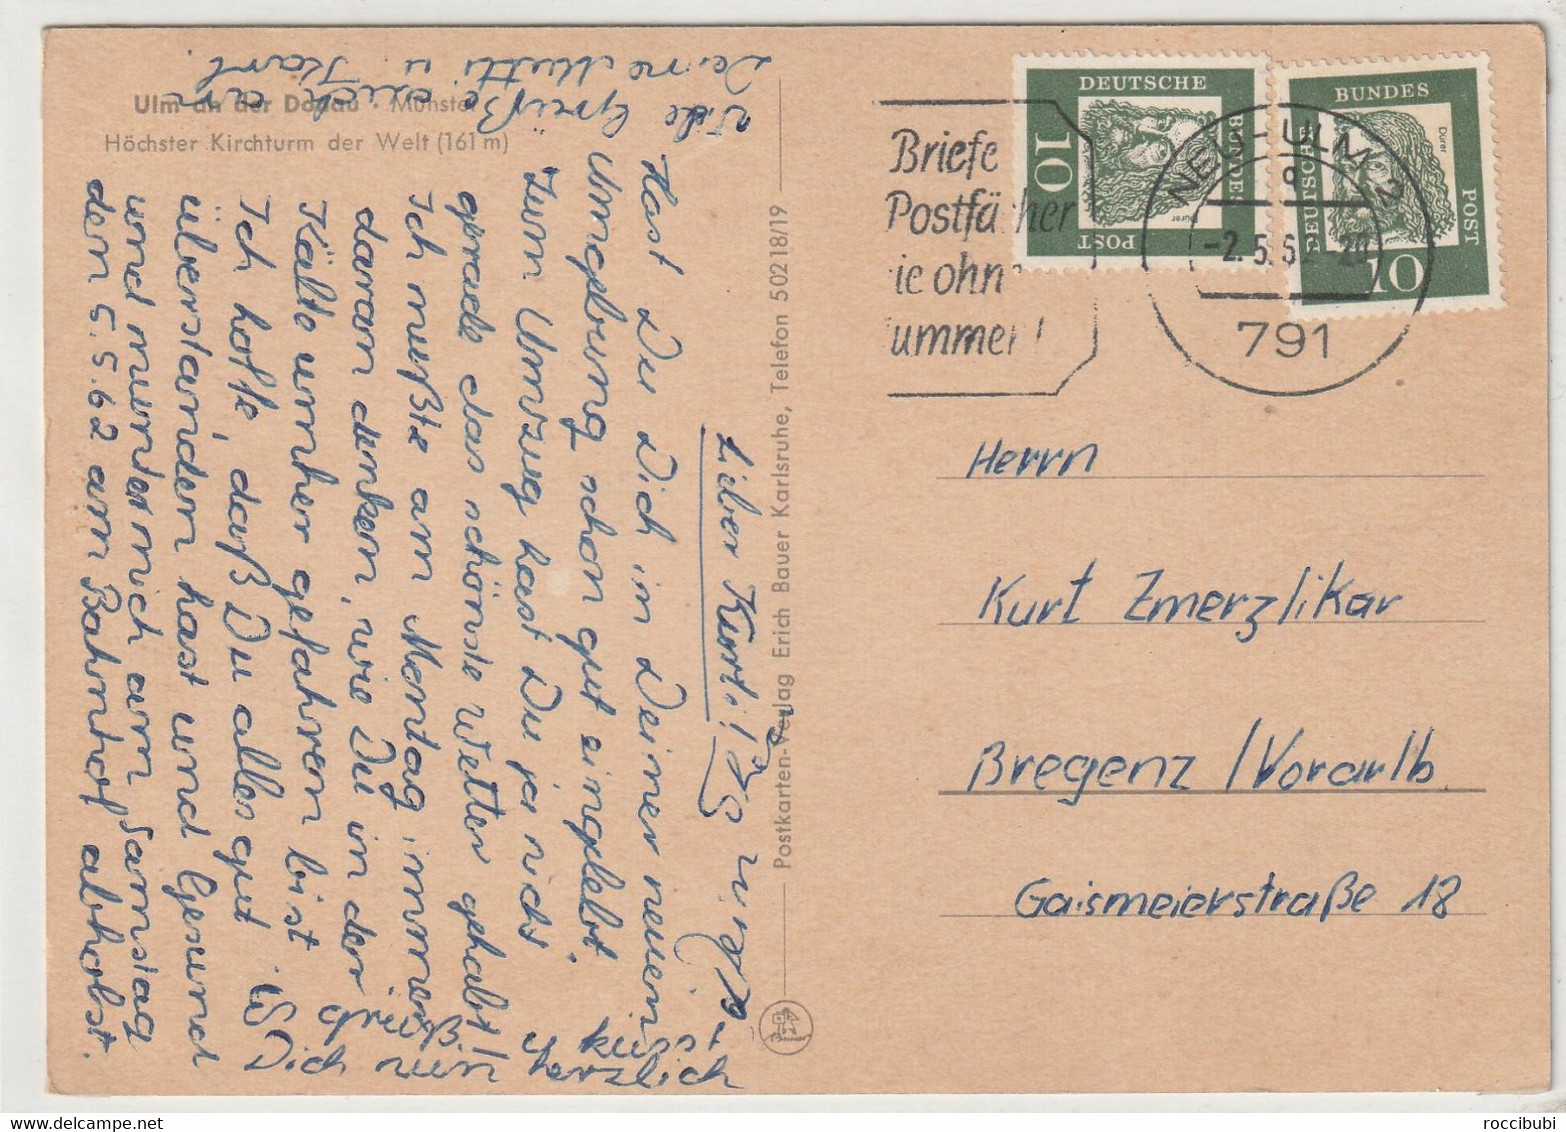 Ulm an der Donau · Münster
Höchster Kirchturm der Welt (161 m)
Lieber Kurti!
Hast Du Dich in Deiner neuen
Umgebung schon gut eingelebt.
Zum Umzug hast Du ja nicht
gerade das schönste Wetter gehabt!
Ich mußte am Montag immer
daran denken, wie Du in der
Kälte umher gefahren bist.
Ich hoffe, daß Du alles gut
überstanden hast und Gesund
und munter mich am Samstag
den 5.5.62 am Bahnhof abholst.
Es grüßt
u. küsst
Dich nun herzlich
Viele Grüße auch an
Deine Mutti u. Karl.
Postkarten-Verlag Erich Bauer Karlsruhe, Telefon 50218/19
Briefe
Postfächer
ie ohn
ummer!
DEUTSCHE
BUNDES
POST
10
Dürer
DEUTSCHE
BUNDES
POST
10
Dürer
NEU-ULM 2
a
-2.5.62-20
791
Herrn
Kurt Zmerzlikar
Bregenz / Vorarlb.
Gaismeierstraße 18
roccibubi